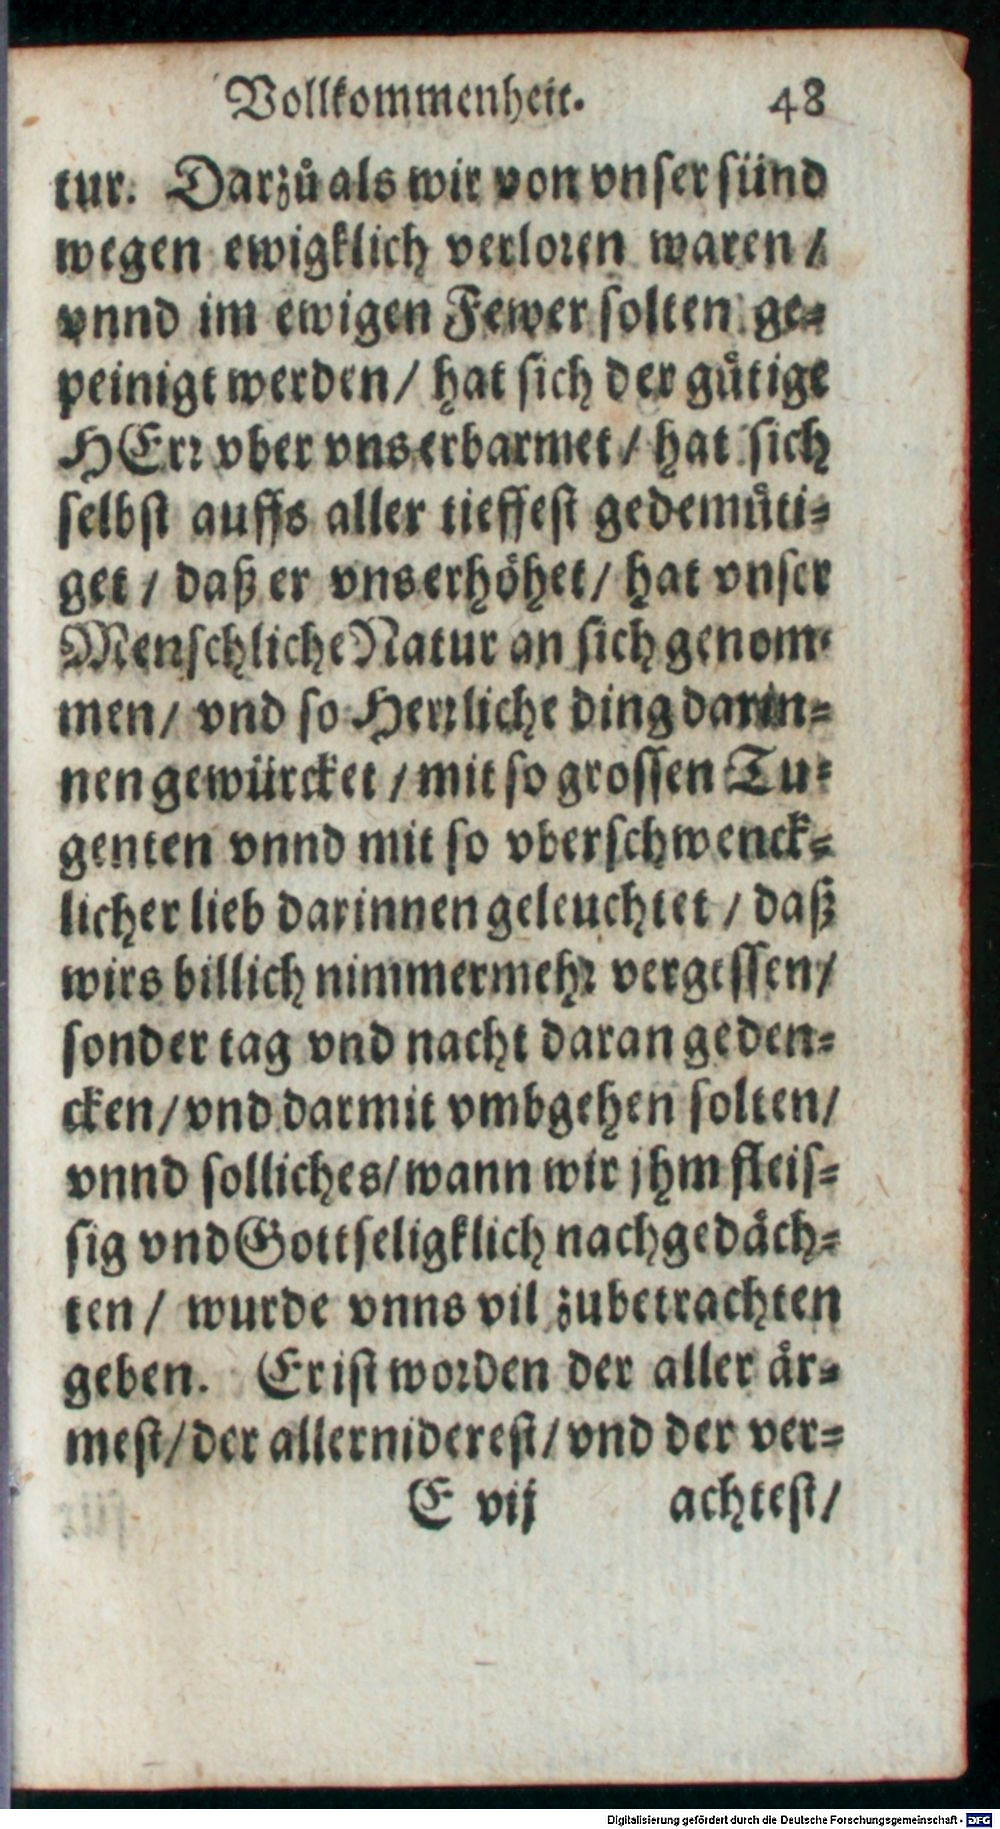 Vollkommenheit. 48
tur. Darzů als wir von vnser sünd
wegen ewigklich verloren waren /
vnnd im ewigen Fewer solten ge-
peinigt werden / hat sich der gůtige
HErr vber vns erbarmet / hat sich
selbst auffs aller tieffest gedemůti-
get / daß er vns erhöhet / hat vnser
Menschliche Natur an sich genom-
men / vnd so Herrliche ding darin-
nen gewürcket / mit so grossen Tu-
genten vnnd mit so vberschwenck-
licher lieb darinnen geleuchtet / daß
wirs billich nimmermehr vergessen /
sonder tag vnd nacht daran geden-
cken / vnd darmit vmbgehen solten /
vnnd solliches / wann wir jhm fleis-
sig vnd Gottseligklich nachgedåch-
ten / wurde vnns vil zubetrachten
geben. Er ist worden der aller år-
mest / der allerniderest / vnd der ver-
E vij achtest /
Digitalisierung gefördert durch die Deutsche Forschungsgemeinschaft - DFG